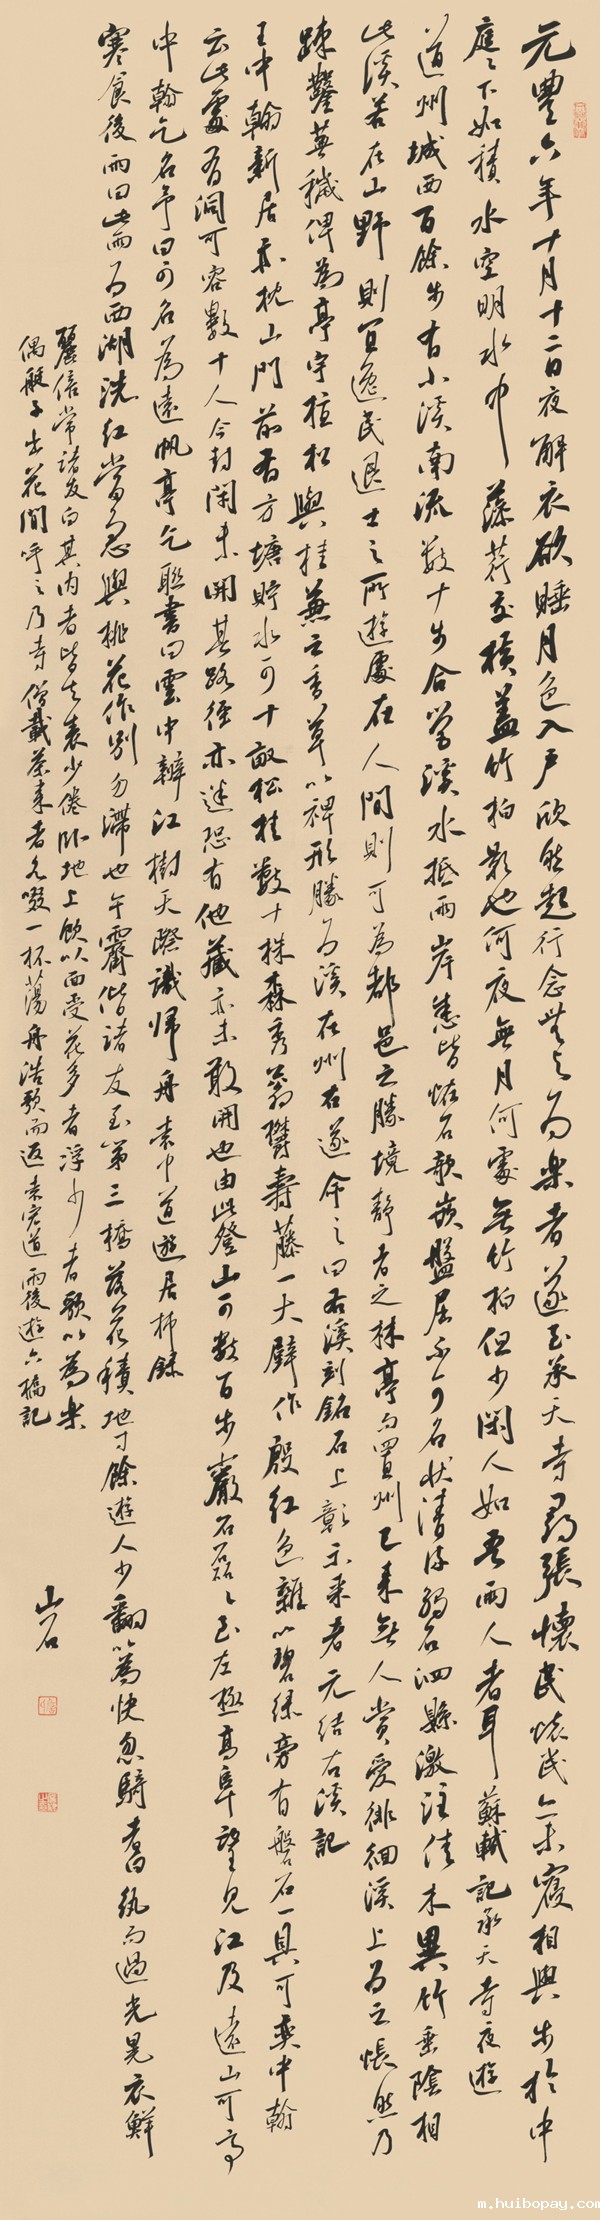 元豐六年十月十二日夜解衣欲睡月色入戶欣然起行念無与为樂者遂至承天寺尋張懷民懷民亦未寢相與步於中
庭〻下如積水空明水中藻荇交橫蓋竹柏影也何夜無月何處無竹柏但少閑人如吾兩人者耳 蘇軾記承天寺夜遊
道州城西百餘步有小溪南流數十步合營溪水抵兩岸悉皆怪石欹嵌盤屈不可名狀清流觸石洄懸激注佳木異竹垂陰相
此溪若在山野則宜逸民退士之所遊處在人間則可為都邑之勝境靜者之林亭而置州已來無人賞愛徘徊溪上为之悵然乃
疎鑿蕪穢俾為亭宇植松與桂兼之香草以裨形勝为溪在州右遂命之曰右溪刻銘石上彰示來者元結右溪記
王中翰新居亦枕山門前有方塘貯水可十畝松桂數十株森秀蓊鬱壽藤一大壁作殷紅色雜以碧綠旁有磐石一具可奕中翰
云此處有洞可容數十人今封閉未開其路徑亦迷恐有他藏亦未敢開也由此登山可數百步巖石磊〻至左極高阜望見江及遠山可亭
中翰乞名予曰可名為遠帆亭乞聯書曰雲中辨江樹天際識歸舟袁中道遊居柿錄
寒食後雨曰此雨为西湖洗紅當急與桃花作別勿滯也午霽偕諸友至第三橋落花積地寸餘遊人少翻以為快忽騎者白紈而過光晃衣鮮
麗倍常諸友白其内者皆去表少倦卧地上飲以面受花多者浮少者歌以為樂
偶艇子出花間呼之乃寺僧載茶來者各啜一杯蕩舟浩歌而返袁宏道雨後遊六橋記
山石
m.huibopay.com